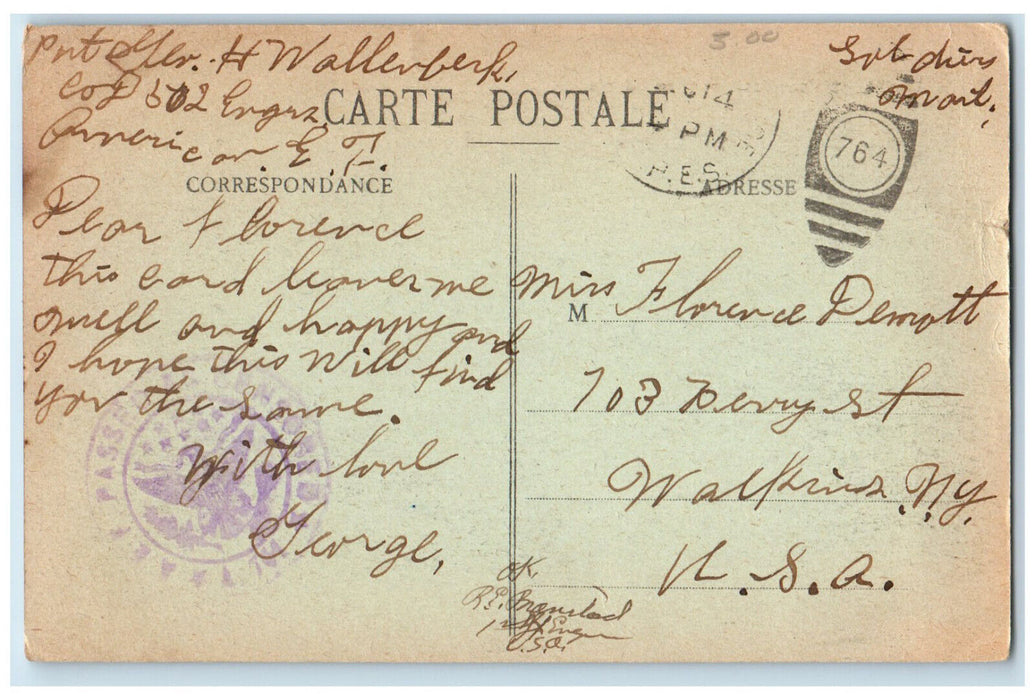 Pvt Geo. H Wallenbeck,
Co D 502 Engrs,
American E. F.
Soldiers
mail.
3.00
CARTE POSTALE
PM
P.E.S.
764
CORRESPONDANCE
ADRESSE
Dear Florence
this card leaves me
well and happy and
I hope this will find
you the same.
With love
George,
M Miss Florence Demott
703 Perry st
Watkins N.Y.
U. S. A.
OK.
1st Lt Engrs
U.S.A.
PASSED CENSOR